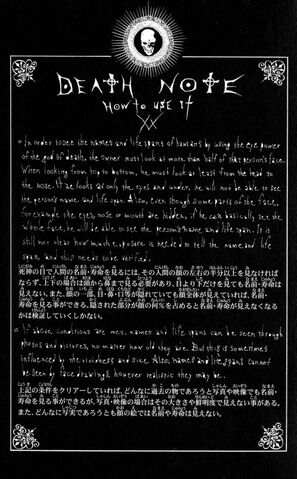 DEATH NOTE
HOW to USE It
XX
o In order to see the names and life spans of humans by using the eye power
of the god of death, the owner must look at more than half of that person's face.
When looking from top to bottom, he must look at least from the head to
the nose. If he looks at only the eyes and under, he will not be able to see
the person's name and life span. Also, even though some parts of the face,
for example the eyes, nose or mouth are hidden, if he can basically see the
whole face, he will be able to see the person's name and life span. It is
still not clear how much exposure is needed to tell the name and life
span, and this needs to be verified.
死神の目で人間の名前・寿命を見るには、その人間の顔の左右の半分以上を見なければ
ならず、上下の場合は頭から鼻まで見る必要があり、目より下だけを見ても名前・寿命は
見えない。また、顔の一部、目・鼻・口等が隠れていても顔全体が見えていれば、名前・
寿命を見る事ができる。隠された部分が顔の何%を占めると名前・寿命が見えなくなる
かは検証していくしかない。
o If above conditions are met, names and life spans can be seen through
photos and pictures, no matter how old they are. But this is sometimes
influenced by the vividness and size. Also, names and life spans cannot
be seen by face drawings, however realistic they may be.
上記の条件をクリアーしていれば、どんなに過去の物であろうと写真や映像でも名前・
寿命を見る事ができるが、写真・映像の場合はその大きさや鮮明度で見えない事がある。
また、どんなに写実であろうとも顔の絵では名前や寿命は見えない。